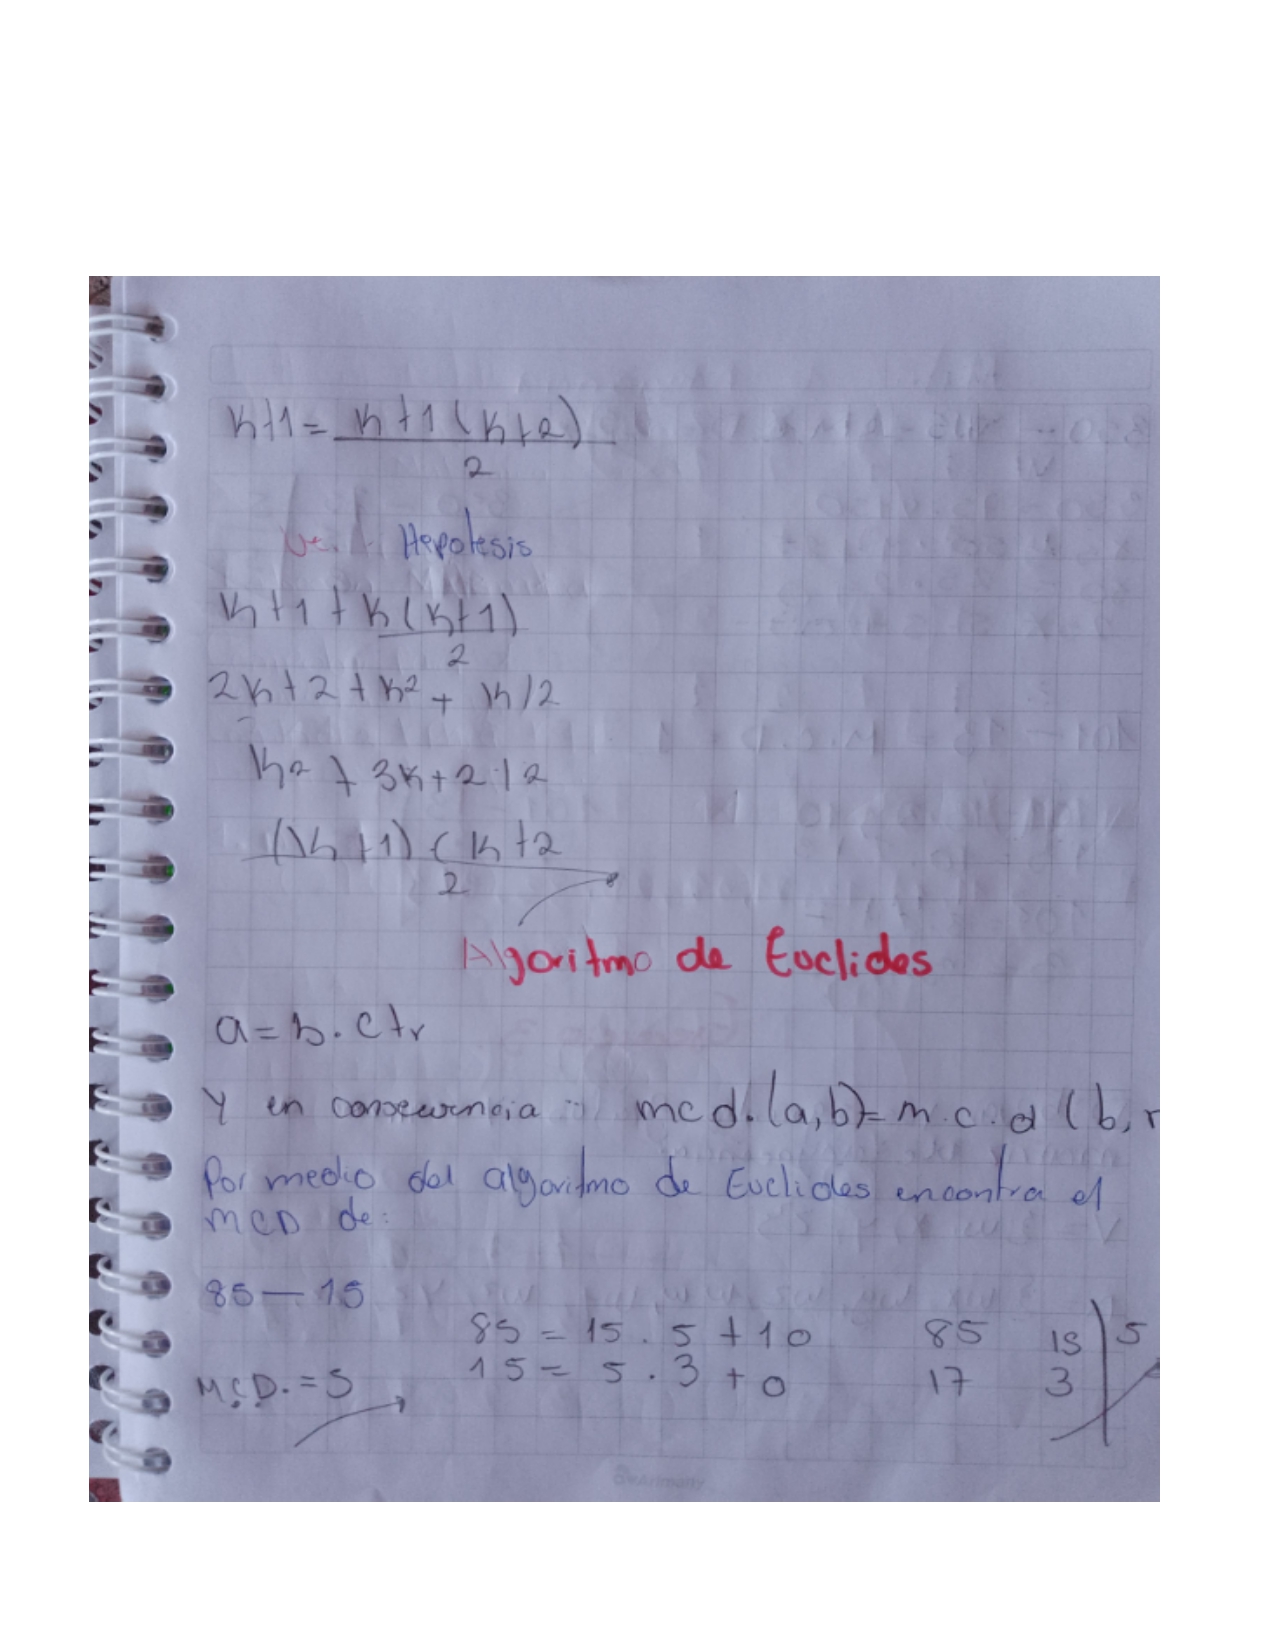 K+1 = K+1 (K+2)
2
Hepotesis
K+1 + K(K+1)
2
2K+2+K² + K/2
K2 + 3K+2/2
(K+1) (K+2
2
Algoritmo de Euclides
a = b. c+r
Y en consecuencia :: mcd.(a,b)=m.c.d (b,r
Por medio del algoritmo de Euclides encontra el
MCD de:
85 — 15
85 = 15 . 5 + 10 85 15 | 5
15 = 5 . 3 + 0 17 3
M.C.D. = 5